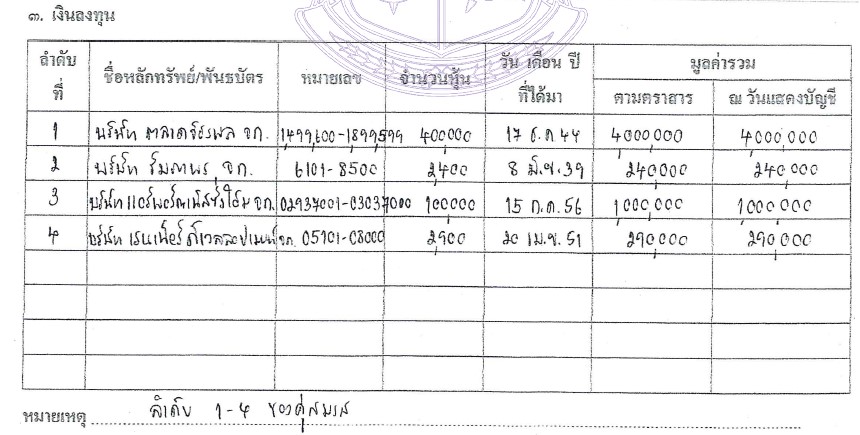 ๓. เงินลงทุน
ลำดับที่ ชื่อหลักทรัพย์/พันธบัตร หมายเลข จำนวนหุ้น วัน เดือน ปี ที่ได้มา มูลค่ารวม
ตามตราสาร ณ วันแสดงบัญชี
1 บริษัท จก. 1,499,600-1,899,599 400,000 17 ธ.ค 44 4,000,000 4,000,000
2 บริษัท จก. 6101-8500 2,400 8 มิ.ย. 39 240,000 240,000
3 บริษัท จก. 02937001-03037000 100,000 15 ก.ค. 56 1,000,000 1,000,000
4 บริษัท จก. 05101-08000 2,900 20 เม.ย. 51 290,000 290,000
หมายเหตุ ลำดับ 1-4 ของคู่สมรส